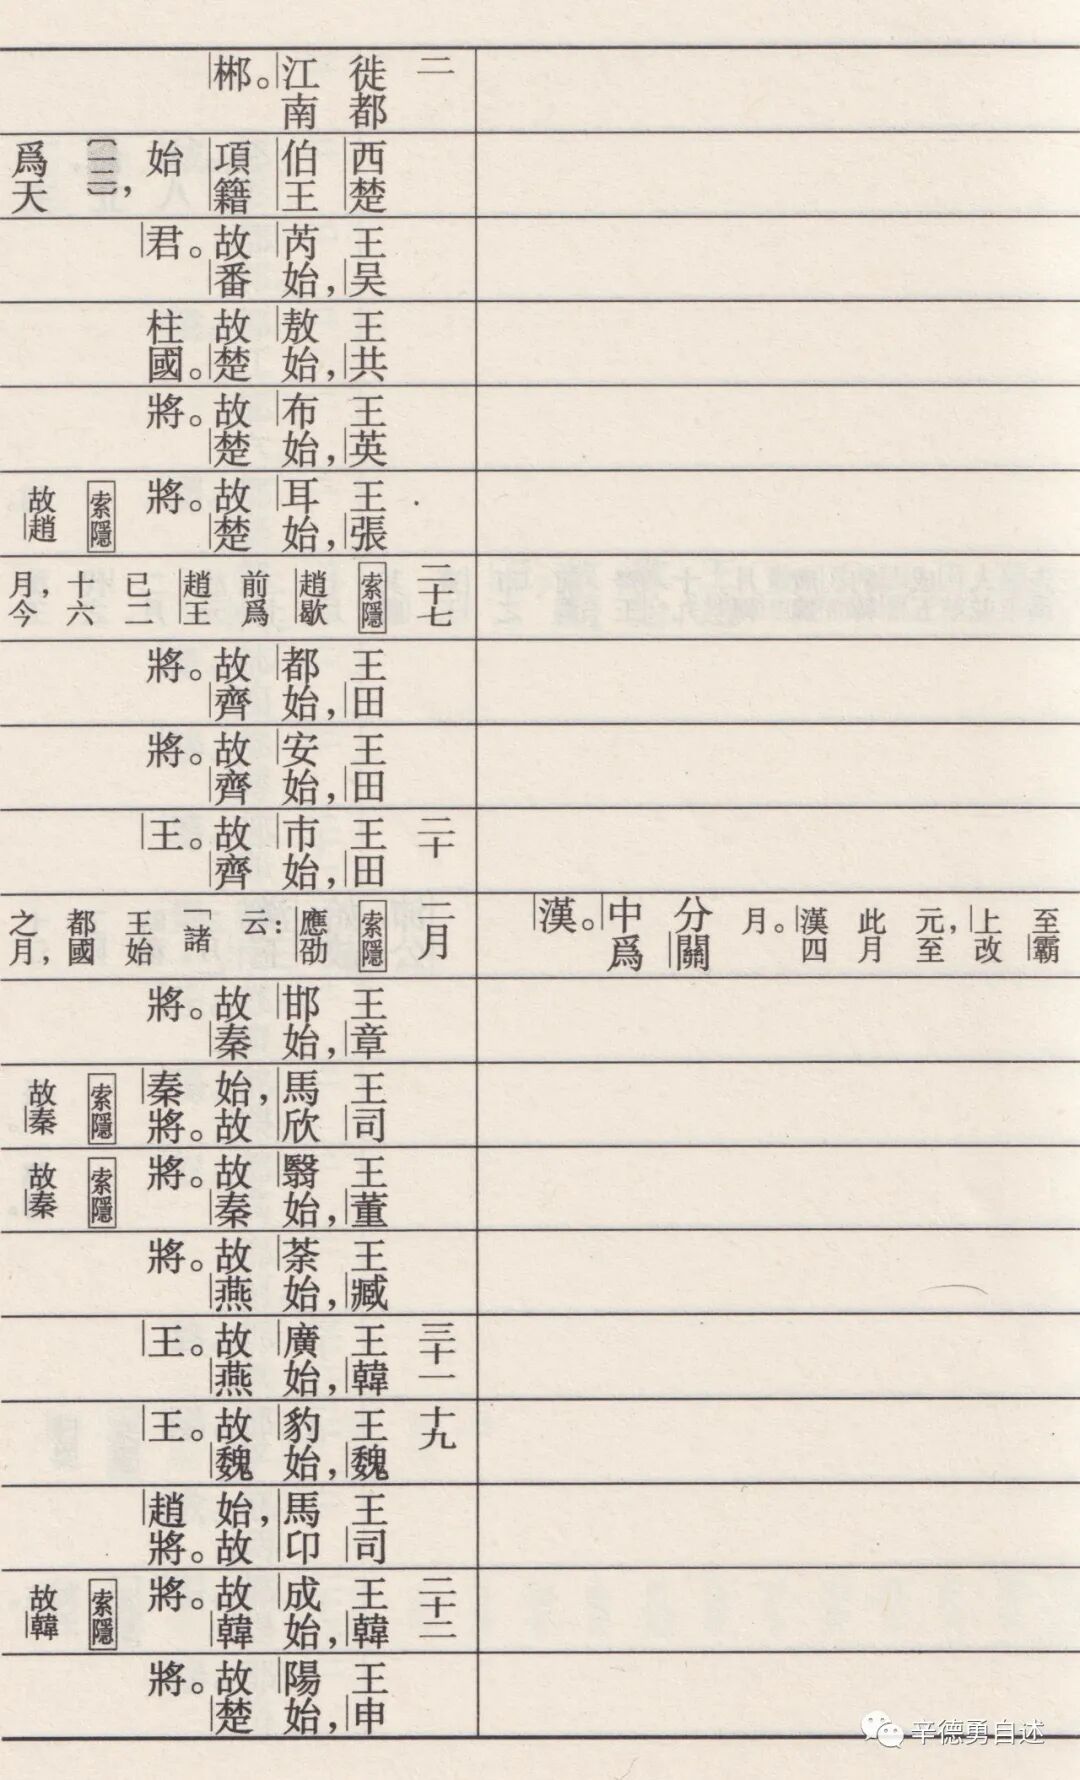 二
徙都
江南
郴。
西楚
伯王
項籍
始
爲天
王吴
芮始，
故番
君。
王共
敖始，
故楚
柱國。
王英
布始，
故楚
將。
王張
耳始，
故楚
將。
索隱
故趙
二十七
索隱
趙歇
前爲
趙王
已二
十六
月，今
王田
都始，
故齊
將。
王田
安始，
故齊
將。
二十
王田
市始，
故齊
王。
至霸
上改
元，至
此月
漢四
月。
分關
中爲
漢。
二月
索隱
應劭
云：
「諸
王始
都國
之月，
王章
邯始，
故秦
將。
王司
馬欣
始，故
秦將。
索隱
故秦
王董
翳始，
故秦
將。
索隱
故秦
王臧
荼始，
故燕
將。
三十一
王韓
廣始，
故燕
王。
十九
王魏
豹始，
故魏
王。
王司
馬卬
始，故
趙將。
二十二
王韓
成始，
故韓
將。
索隱
故韓
王申
陽始，
故楚
將。
辛德勇自述